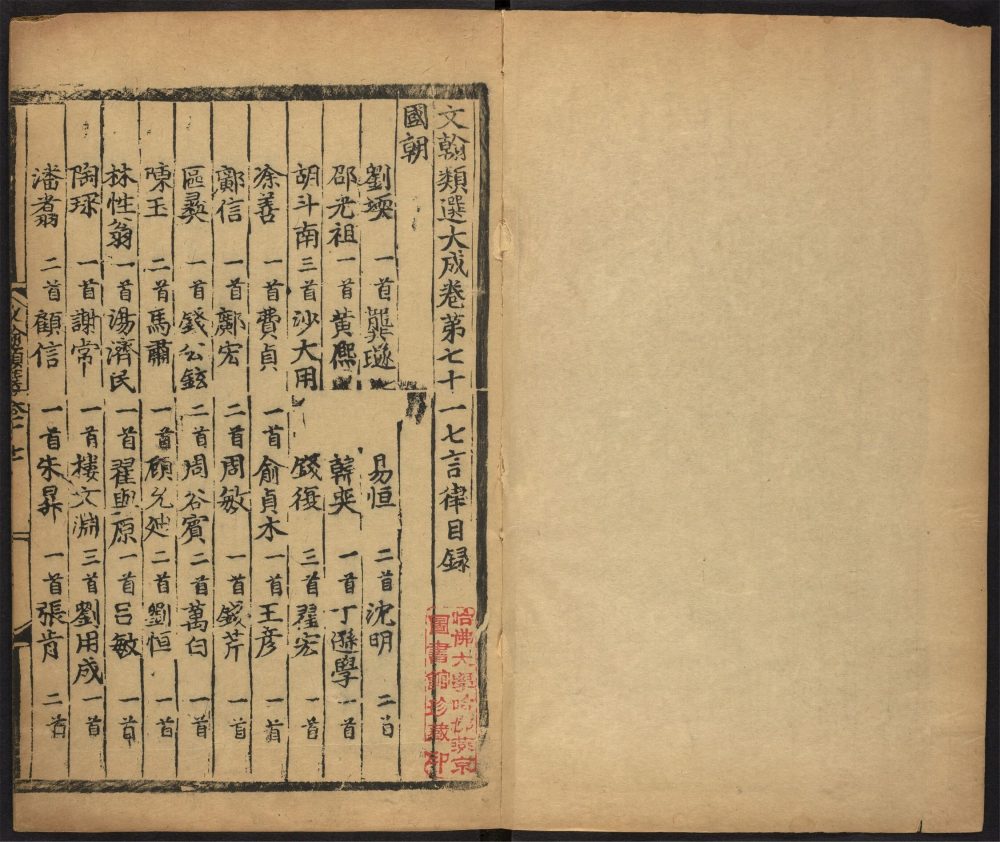 文翰類選大成卷第七十一七言律目錄
國朝
劉 一首 龔璲 易恒 二首 沈明 二首
邵光祖 一首 黃熈 韓奕 一首 丁遜學 一首
胡斗南 三首 沙大用 錢復 三首 翟宏 一首
徐善 一首 費貞 一首 俞貞木 一首 王彦 一首
鄺信 一首 鄺宏 二首 周敏 一首 錢芹 一首
區彝 一首 錢公鉉 二首 周谷賓 二首 萬白 一首
陳玉 二首 馬肅 一首 顧允廸 二首 劉恒 一首
林性翁 一首 湯濟民 一首 翟與原 一首 吕敏 一首
陶琛 一首 謝常 一首 樓文淵 三首 劉用成 一首
潘翥 二首 顧信 一首 朱昇 一首 張肯 二首
哈佛大學哈佛燕京
圖書館珍藏印